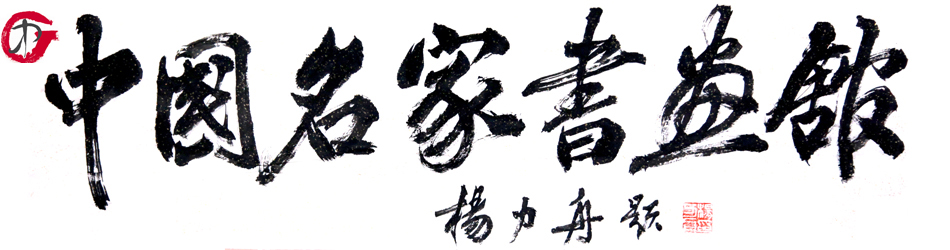 中國名家書畫舘
楊力舟題